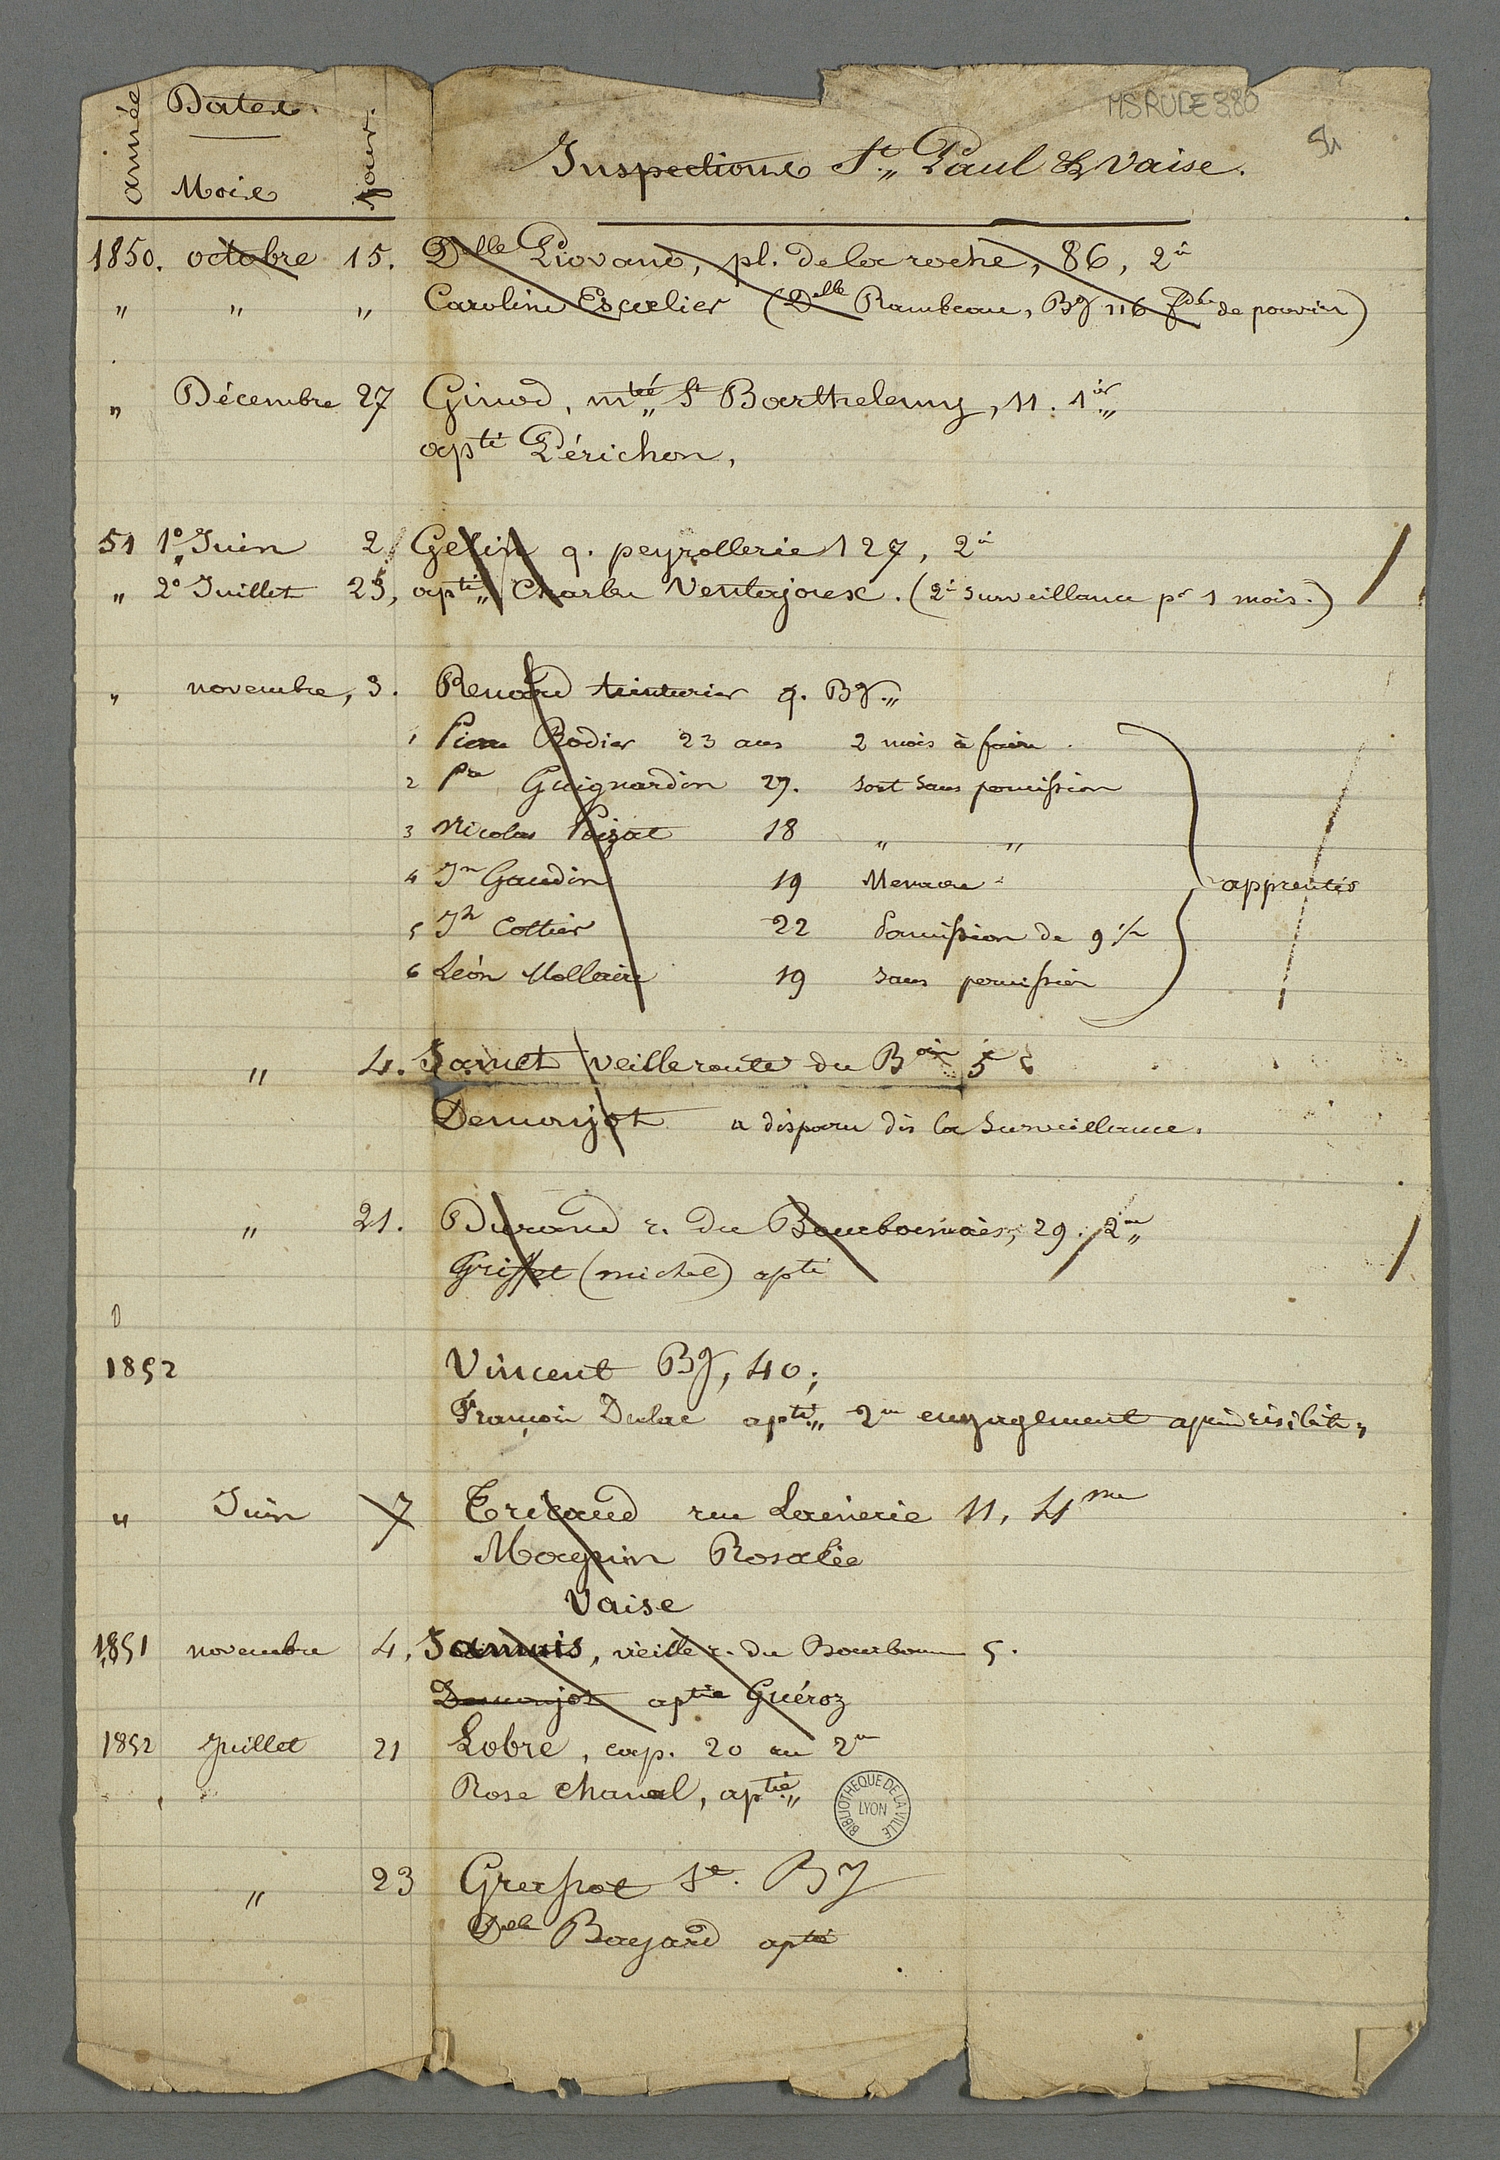 MS RUDE 380
année Dates. Jour.
Mois
Inspections St. Paul & Vaise.
1850. octobre 15. Delle Piovano, pl. de la roche, 86, 2e
" " " Caroline Escalier (Delle Rambeau, Bf 116 de pouvoir)
" Décembre 27 Girod, mtée St Barthelemy, 11. 1er
apti Périchon,
51 1º Juin 2 Gelin q. peyrollerie 127, 2e
" 2º Juillet 25, apti Charles Ventajoux. (2e surveillance pr 1 mois.)
" novembre, 3. Renard teinturier q. Bf
1 Pierre Rodier 23 ans 2 mois à faire
2 Pre Guignardon 27. sort sans permission
3 Nicolas Poizat 18 " "
4 Jn Gaudin 19 Menace
apprentis
5 Jh Cottier 22 Permission de 9 h
6 Léon Mollaire 19 sans permission
" 4. Jamet veille route du Bais 5
Demonjot a disparu dès la surveillance.
" 21. Durand r. du Bourbonnais, 29. 2e
Griffet (michel) apti
1852 Vincent Bf, 40;
François Dulac apti 2e engagement
" Juin 7 Tricaud rue Lainerie 11, 4me
Magnin Rosalie
Vaise
1851 novembre 4, Jamais, vieille r. du Bourbonn 5.
Demonjot aptie Guéroz
1852 Juillet 21 Lobre, cap. 20 au 2e
Rose Chanal, aptie
BIBLIOTHEQUE DE LA VILLE LYON
" 23 Grespot St. Bf
Delle Bayard aptie